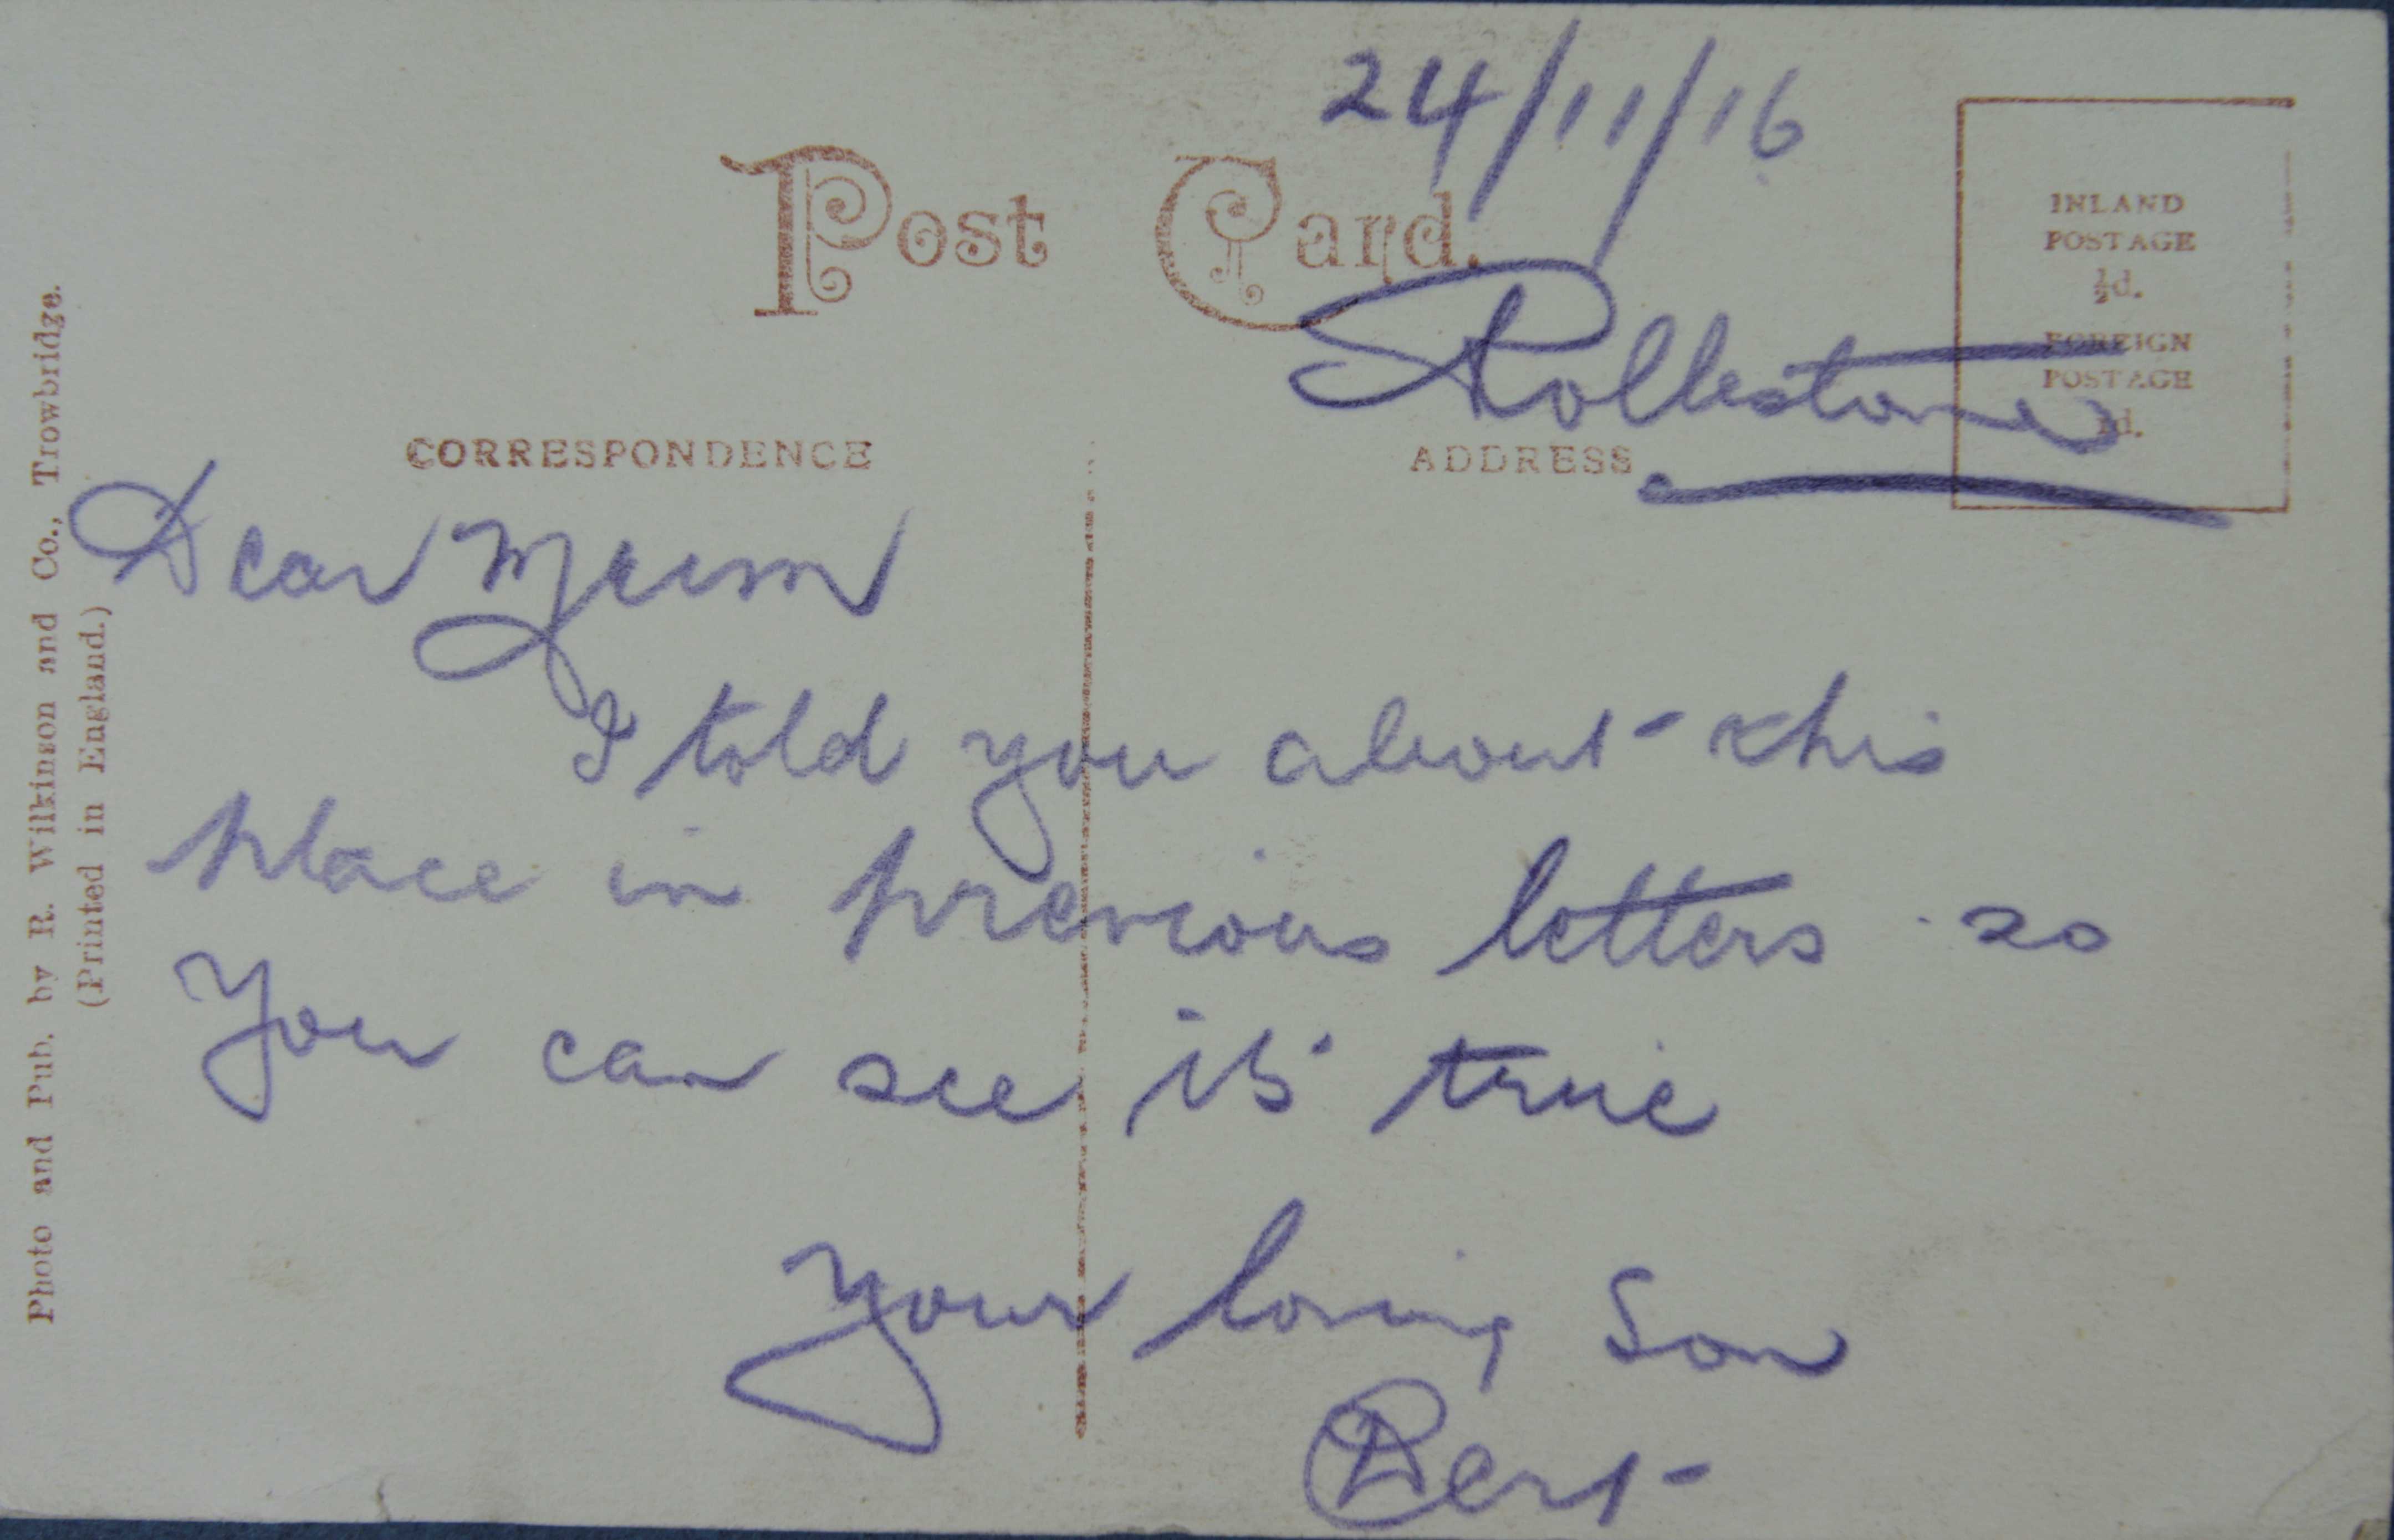 24/11/16
Post Card.
Rollestone
INLAND
POSTAGE
½d.
FOREIGN
POSTAGE
1d.
CORRESPONDENCE
ADDRESS
Dear Mum
I told you about this
place in previous letters so
you can see its true
your loving Son
Bert
Photo and Pub. by R. Wilkinson and Co., Trowbridge.
(Printed in England.)